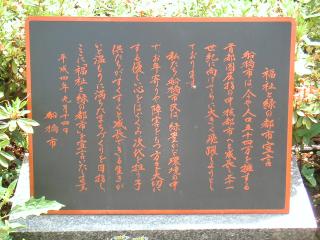 福祉と緑の都市宣言
船橋市は人口五十四万を擁する
首都圏屈指の中核都市へと成長し二十一
世紀に向けてさらに大きく飛躍しようとし
ております。
私たち船橋市民は緑豊かな環境の中
でお年寄りや障害をもつ方を大切に
する優しい心をはぐくみ次代を担う子
供たちがすくすくと成長できる生きが
いと温もりに満ちたまちづくりを目指し
ここに福祉と緑の都市を宣言いたします。
平成四年九月二十四日
船橋市